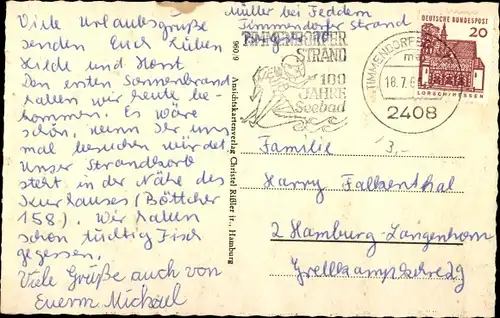 Müller bei Feddern
Timmendorf. Strand
Viele Urlaubsgrüße
senden Euch Lieben
Hilde und Horst
Den ersten Sonnenbrand
haben wir heute be-
kommen. Es wäre
schön, wenn Ihr uns
mal besuchen würdet
Unser Strandkorb
steht in der Nähe des
Kurhauses (Böttcher
158). Wir haben
schon tüchtig Fisch
gegessen.
Viele Grüße auch von
Euerm Michael
960/9 Ansichtskartenverlag Christel Rüßler jr., Hamburg
TIMMENDORFER
STRAND
100
JAHRE
Seebad
TIMMENDORFER
18.7.6
2408
DEUTSCHE BUNDESPOST
20
LORSCH/HESSEN
3,-
Familie
Harry Falkenthal
2 Hamburg-Langenhorn